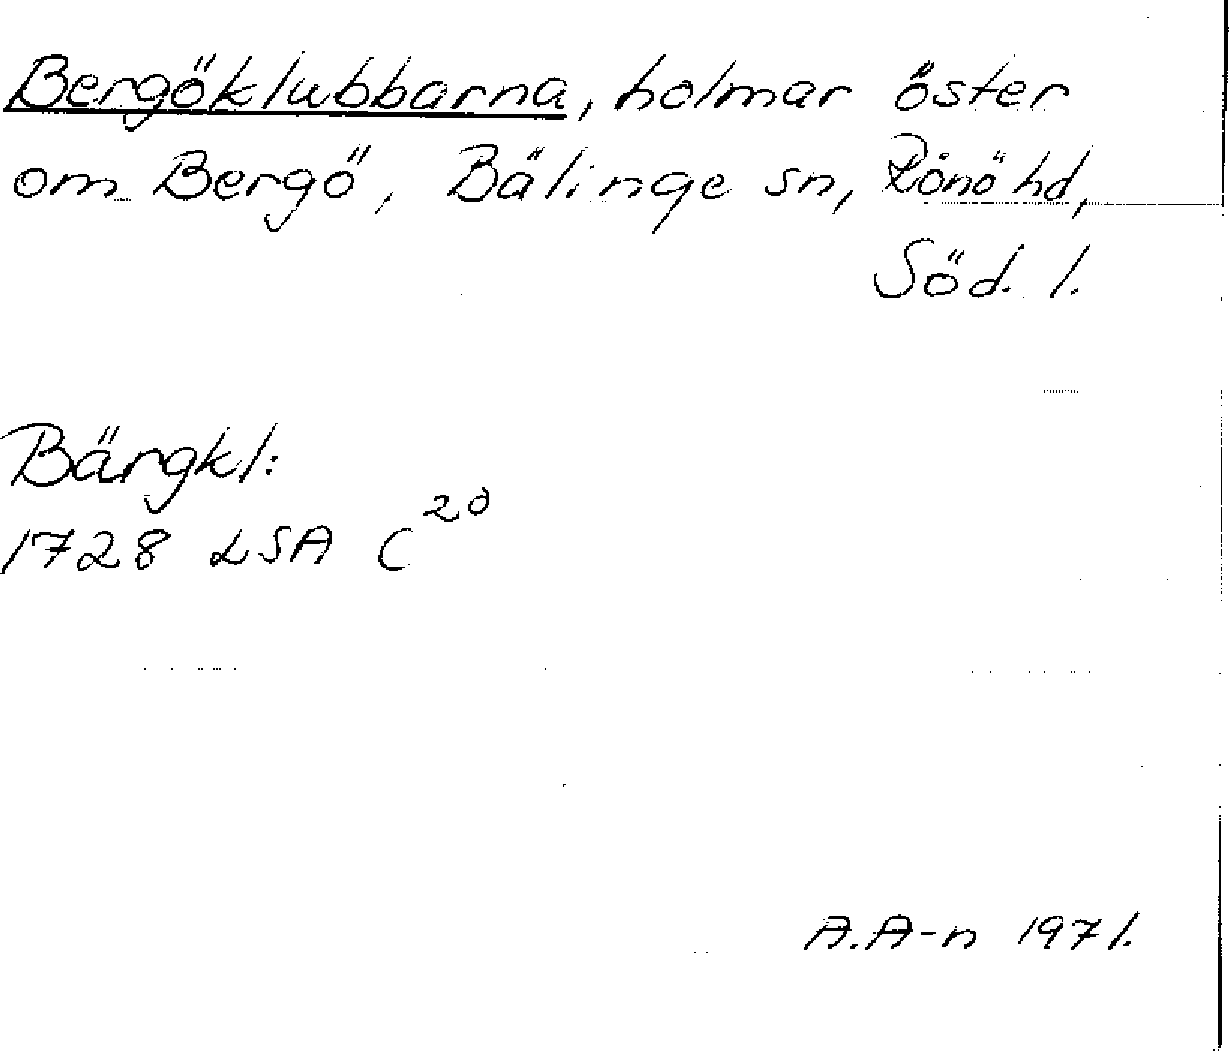 Bergöklubbarna, holmar öster
om Bergö, Bälinge sn, Rönö hd,
Söd. l.
Bärgkl:
1728 LSA C 20
A.A-n 1971.